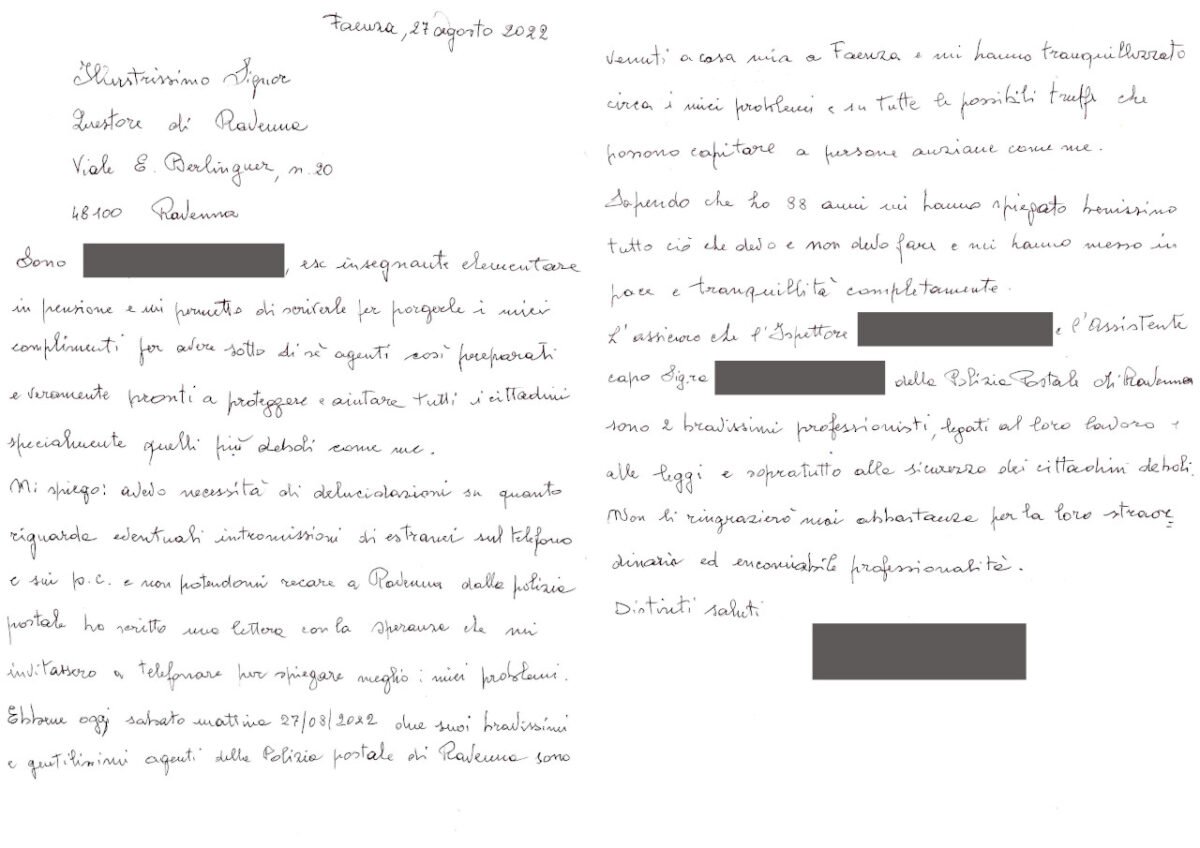 Faenza, 27 agosto 2022
Illustrissimo Signor
Questore di Ravenna
Viale E. Berlinguer, n. 20
48100 Ravenna
Sono , ex insegnante elementare
in pensione e mi permetto di scriverle per porgerle i miei
complimenti per avere sotto di sè agenti così preparati
e veramente pronti a proteggere e aiutare tutti i cittadini
specialmente quelli più deboli come me.
Mi spiego: avevo necessità di delucidazioni su quanto
riguarda eventuali intromissioni di estranei sul telefono
e sui p.c. e non potendomi recare a Ravenna dalla polizia
postale ho scritto una lettera con la speranza che mi
invitassero a telefonare per spiegare meglio i miei problemi.
Ebbene oggi sabato mattina 27/08/2022 due suoi bravissimi
e gentilissimi agenti della Polizia postale di Ravenna sono
venuti a casa mia a Faenza e mi hanno tranquillizzato
circa i miei problemi e su tutte le possibili truffe che
possono capitare a persone anziane come me.
Sapendo che ho 88 anni mi hanno spiegato benissimo
tutto ciò che devo e non devo fare e mi hanno messo in
pace e tranquillità completamente.
L'assicuro che l'Ispettore e l'Assistente
capo Sig.ra della Polizia Postale di Ravenna
sono 2 bravissimi professionisti, legati al loro lavoro e
alle leggi e sopratutto alla sicurezza dei cittadini deboli.
Non li ringrazierò mai abbastanza per la loro straor
dinaria ed encomiabile professionalità.
Distinti saluti